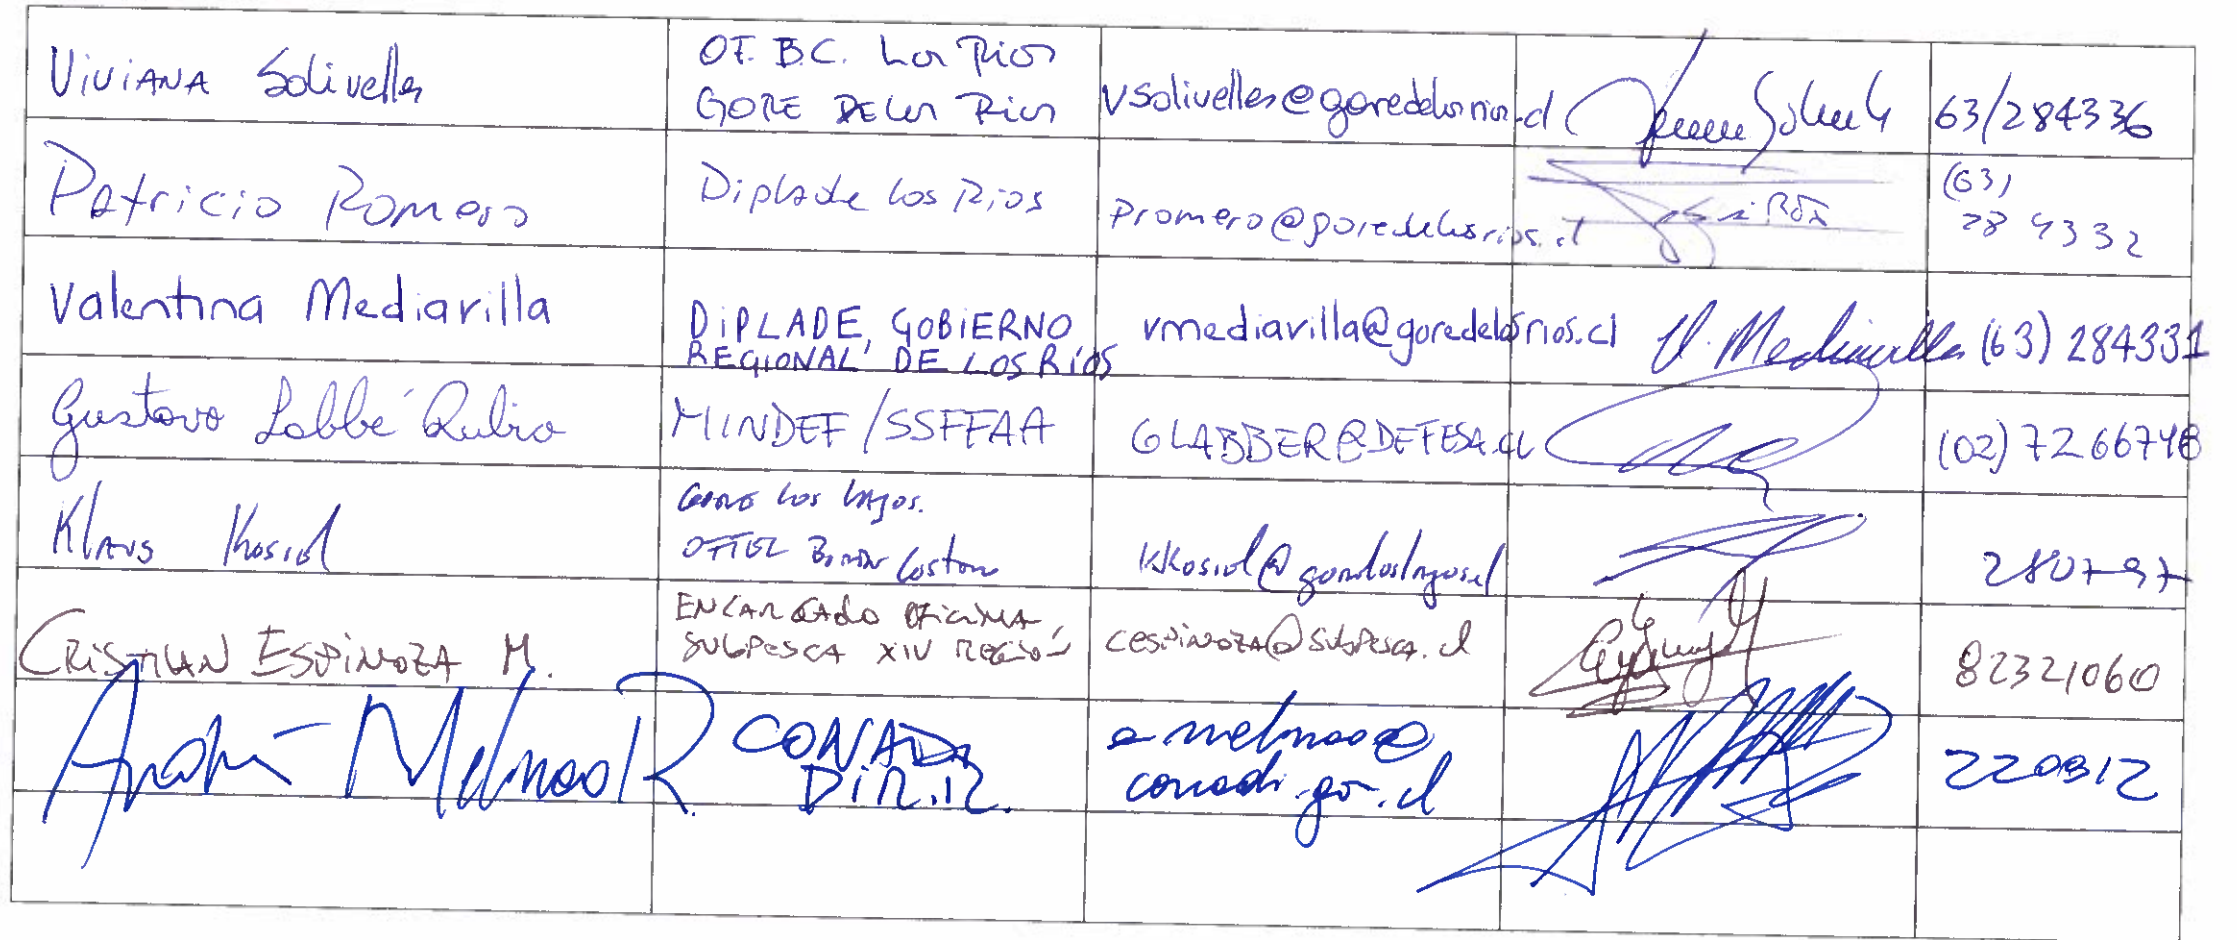 Viviana Solivelles
OF. B.C. Los Rios
GORE DE Los Rios
vsolivelles@goredelosrios.cl
63/284336
Patricio Romero
Diplade Los Rios
promero@goredelosrios.cl
(63)
28 4332
Valentina Mediavilla
DIPLADE, GOBIERNO
REGIONAL DE LOS RÍOS
vmediavilla@goredelosrios.cl
V. Mediavilla
(63) 284331
Gustavo Labbé Rubio
MINDEF/SSFFAA
GLABBER@DEFESA.CL
(02) 7266748
Klaus Kosiel
GORE Los Lagos.
Borde Costero
280797
CRISTIAN ESPINOZA M.
ENCARGADO OFICINA
SUBPESCA XIV REGIÓN
cespinoza@subpesca.cl
82321060
R.
CONADI
DIR.R.
conadi.gov.cl
220312